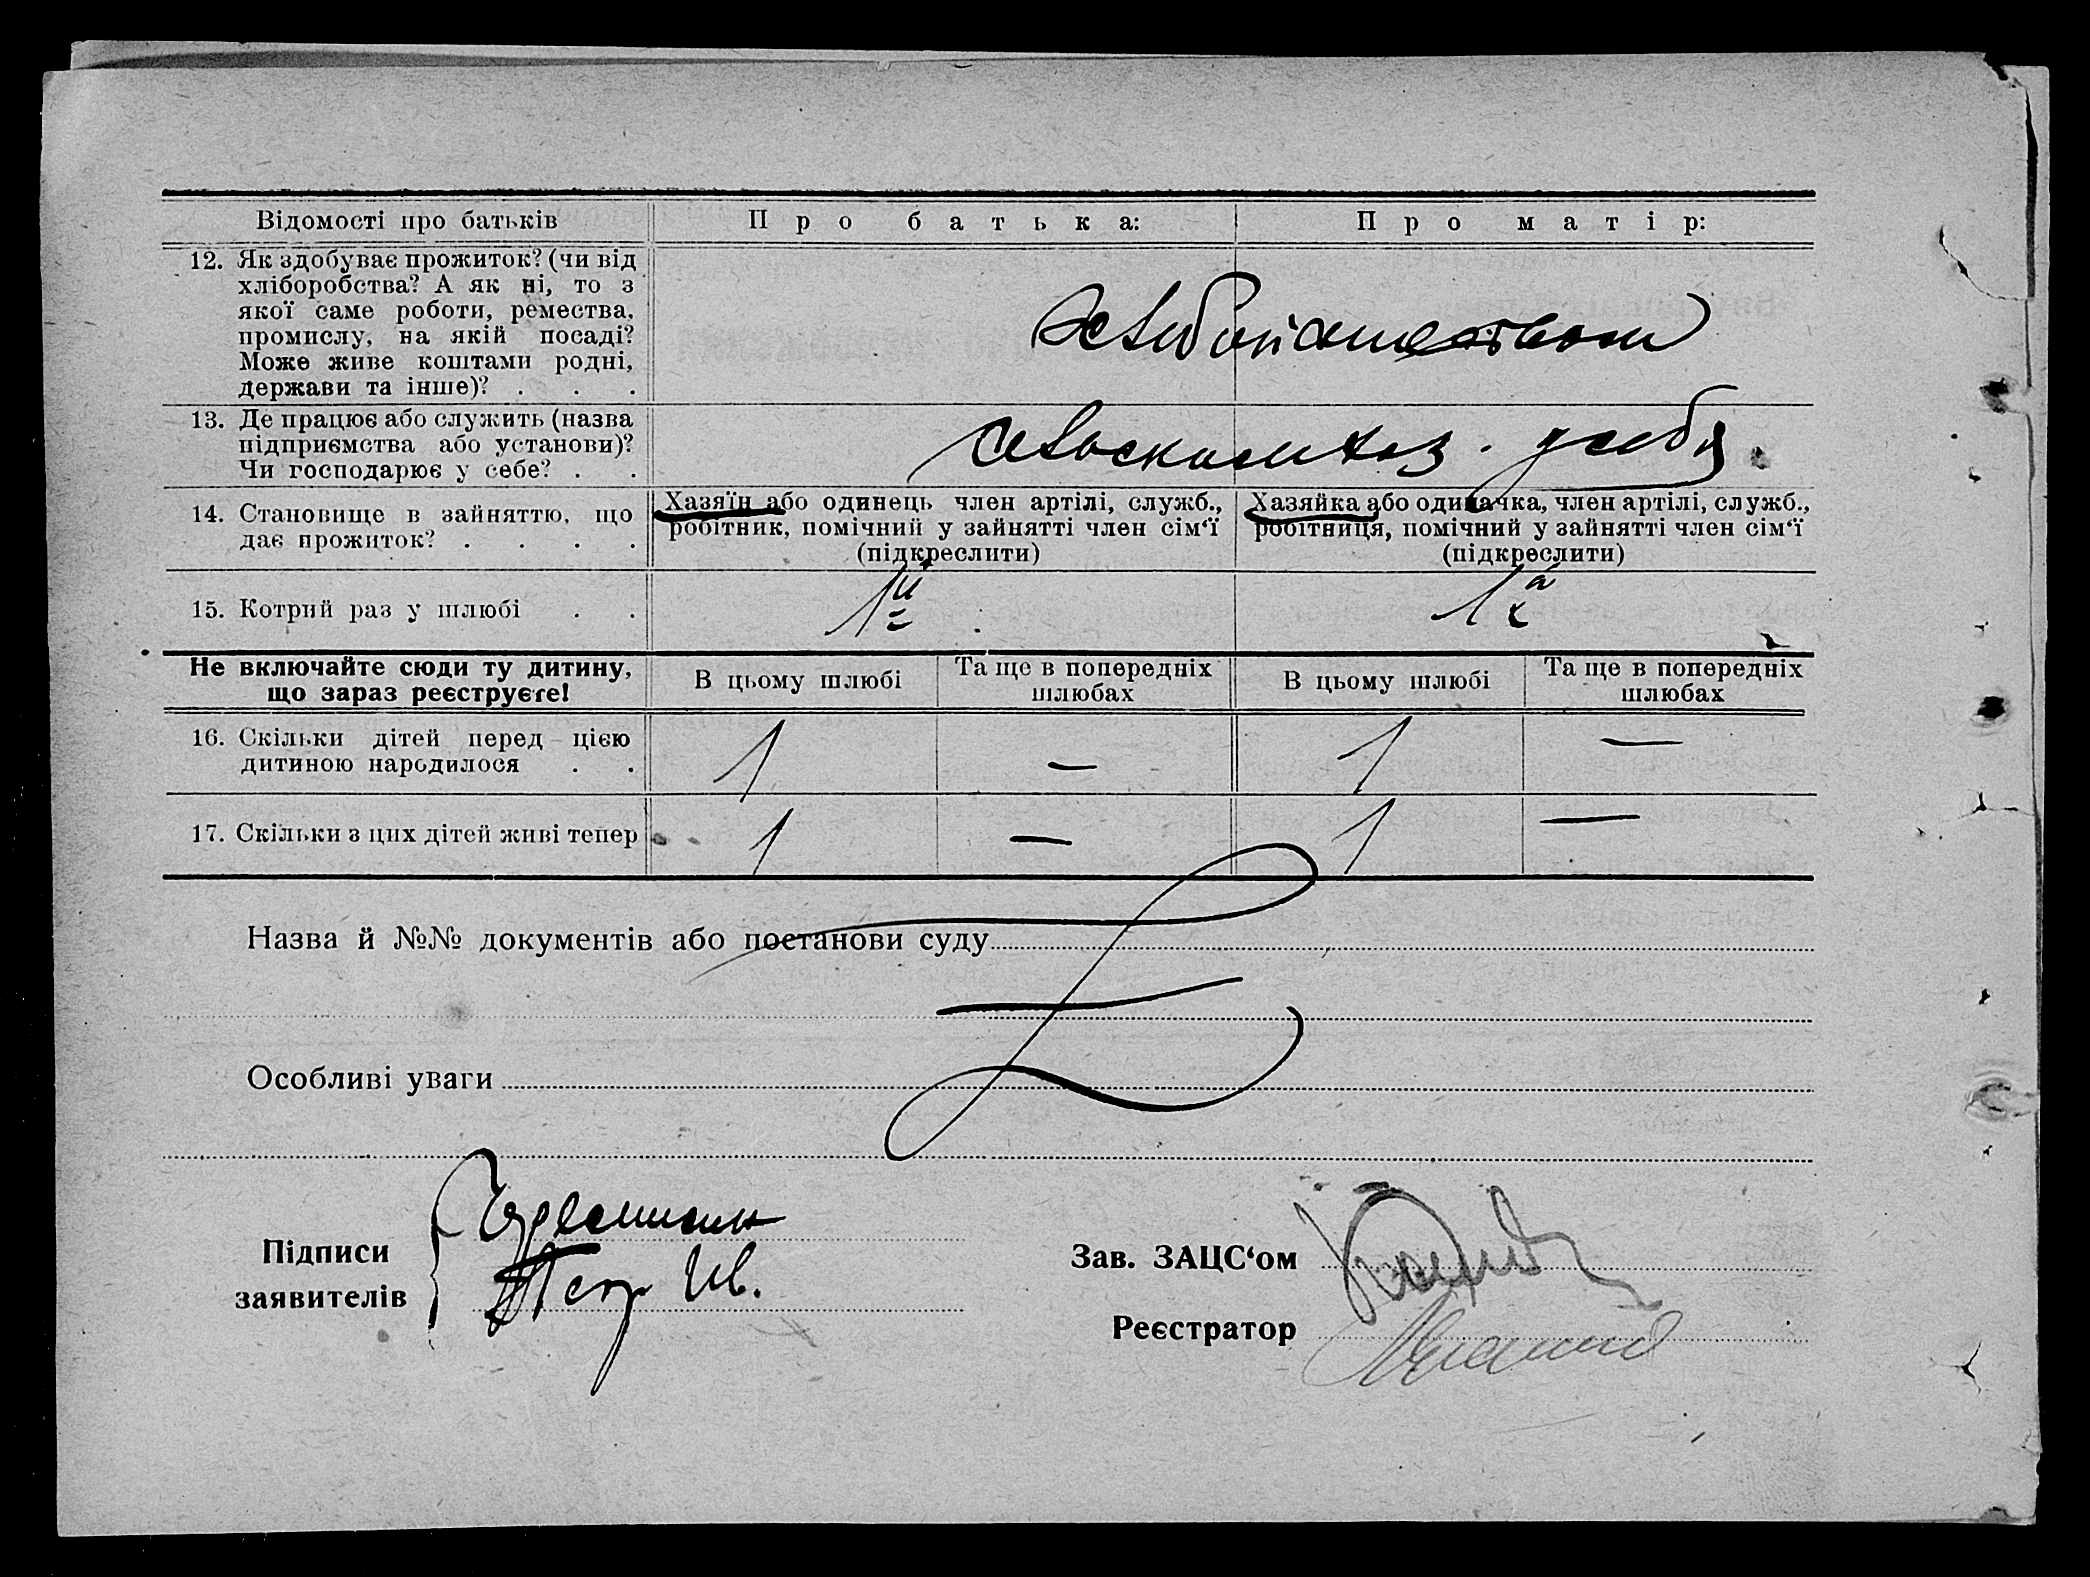 Відомості про батьків
Про батька:
Про матір:
12. Як здобуває прожиток? (чи від
хліборобства? А як ні, то з
якої саме роботи, ремества,
промислу, на якій посаді?
Може живе коштами родні,
держави та інше)? . . .
13. Де працює або служить (назва
підприємства або установи)?
Чи господарює у себе? . .
у себя
14. Становище в зайняттю, що
дає прожиток? . . . .
Хазяїн або одинець член артілі, служб.,
робітник, помічний у зайнятті член сім‘ї
(підкреслити)
Хазяйка або одиначка, член артілі, служб.,
робітниця, помічний у зайнятті член сім‘ї
(підкреслити)
15. Котрий раз у шлюбі . .
1й
1а
Не включайте сюди ту дитину,
що зараз реєструєте!
В цьому шлюбі
Та ще в попередніх
шлюбах
В цьому шлюбі
Та ще в попередніх
шлюбах
16. Скільки дітей перед цією
дитиною народилося . .
1 — 1 —
17. Скільки з цих дітей живі тепер
1 — 1 —
Назва й №№ документів або постанови суду
Особливі уваги
Підписи
заявителів
Петр Ив.
Зав. ЗАЦС‘ом
Реєстратор